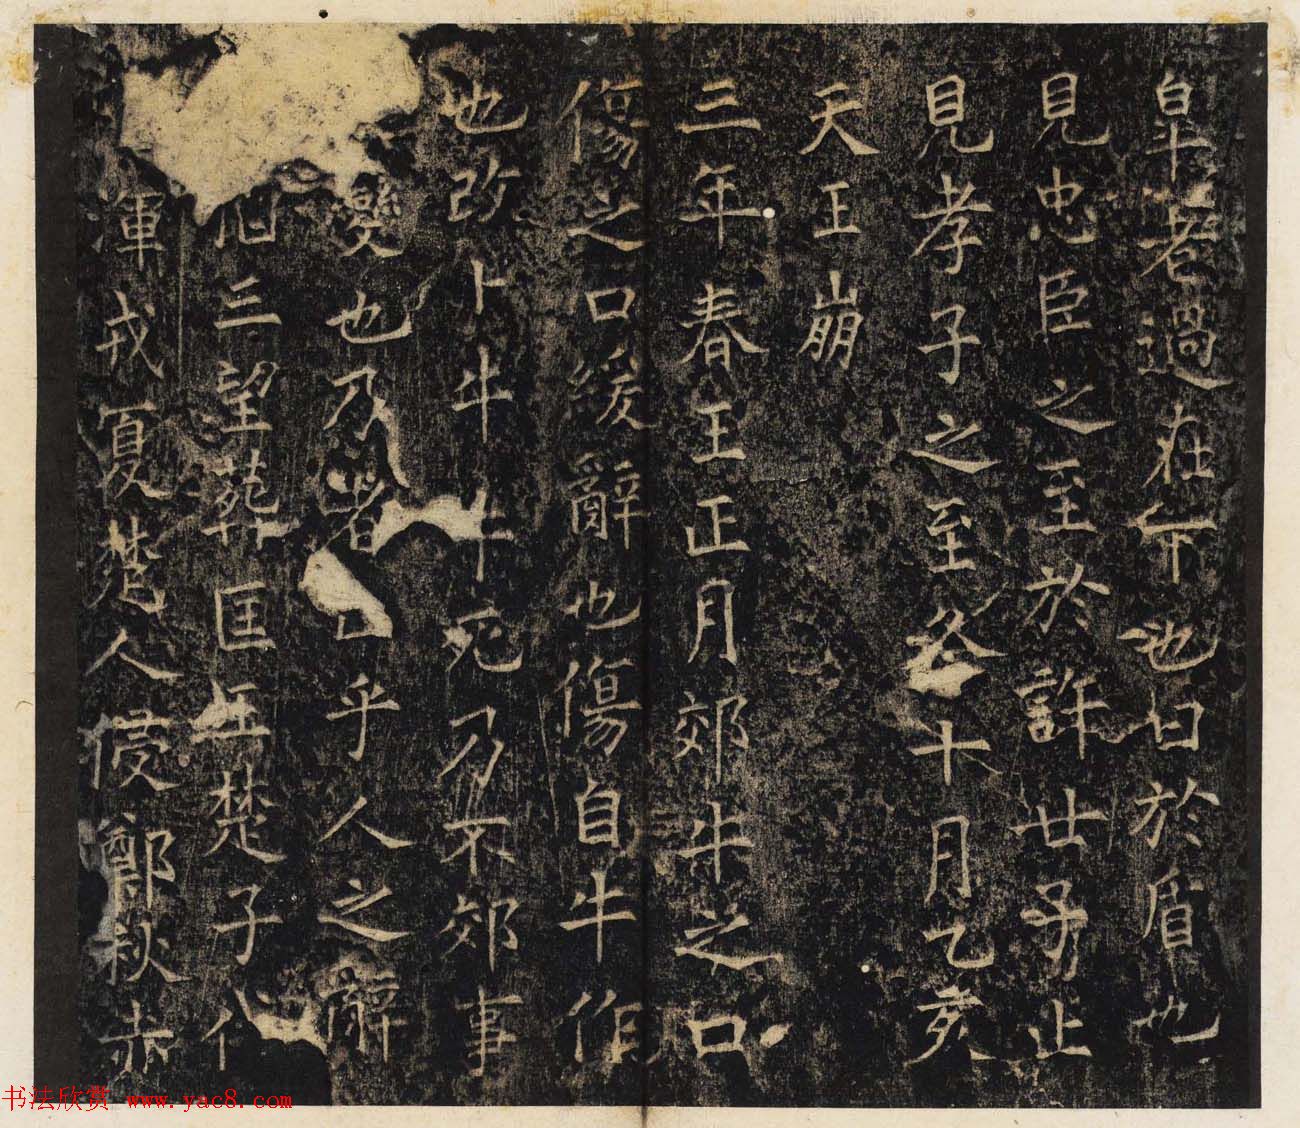 皐者過在下也曰於盾也
見忠臣之至於許世子止
見孝子之至冬十月乙亥
天王崩
三年春王正月郊牛之口
傷之口緩辭也傷自牛作
也改卜牛牛死乃不郊事
變也乃者亡乎人之辭
三望葬匡王楚子伐
渾戎夏楚人侵鄭秋赤
书法欣赏 www.yac8.com